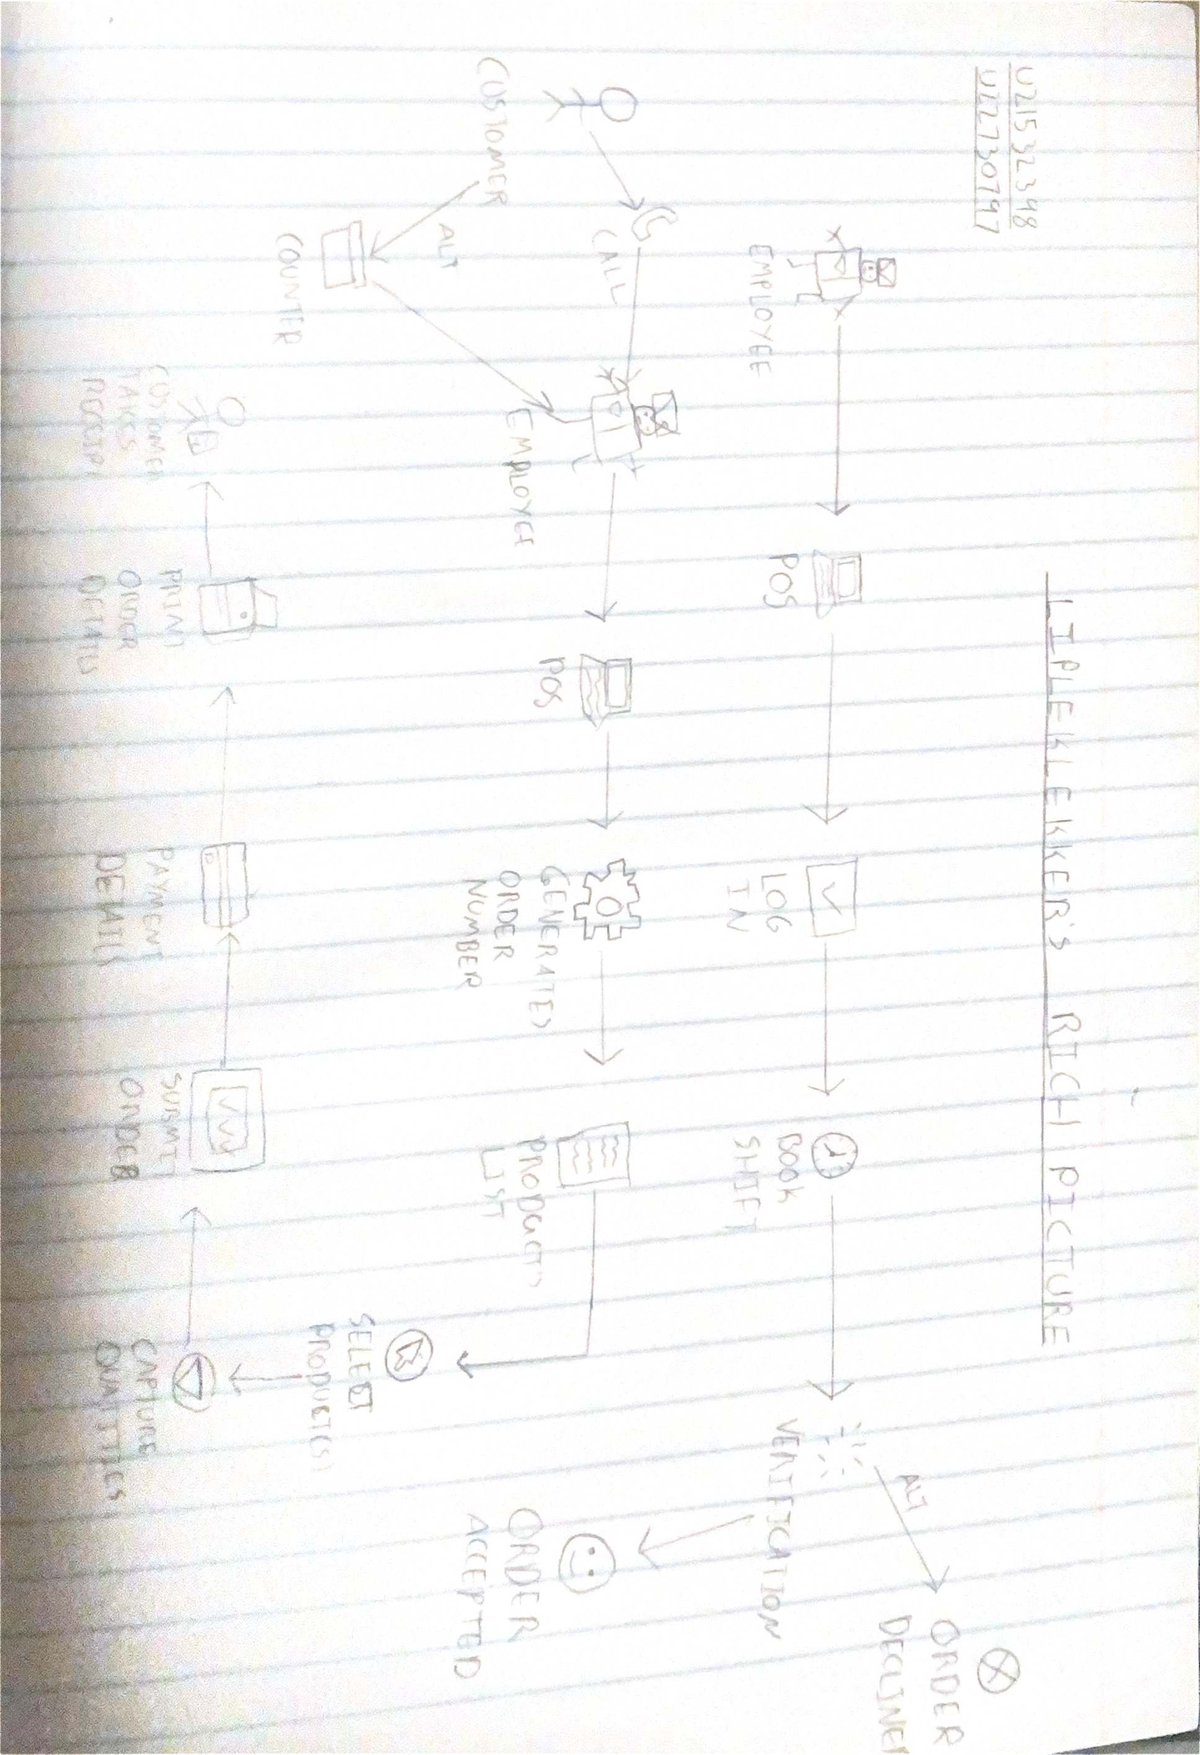 LIPLEKLEKKER'S RICH PICTURE
U21532348
U22730797
EMPLOYEE
POS
LOG
IN
BOOK
SHIFT
VERIFICATION
ALT
ORDER
DECLINED
ORDER
ACCEPTED
CUSTOMER
CALL
ALT
COUNTER
EMPLOYEE
POS
GENERATES
ORDER
NUMBER
PRODUCTS
LIST
SELECT
PRODUCT(S)
CAPTURE
QUATITIES
SUBMIT
ORDER
PAYMENT
DETAILS
PRINT
ORDER
DETAILS
CUSTOMER
TAKES
RECEIPT